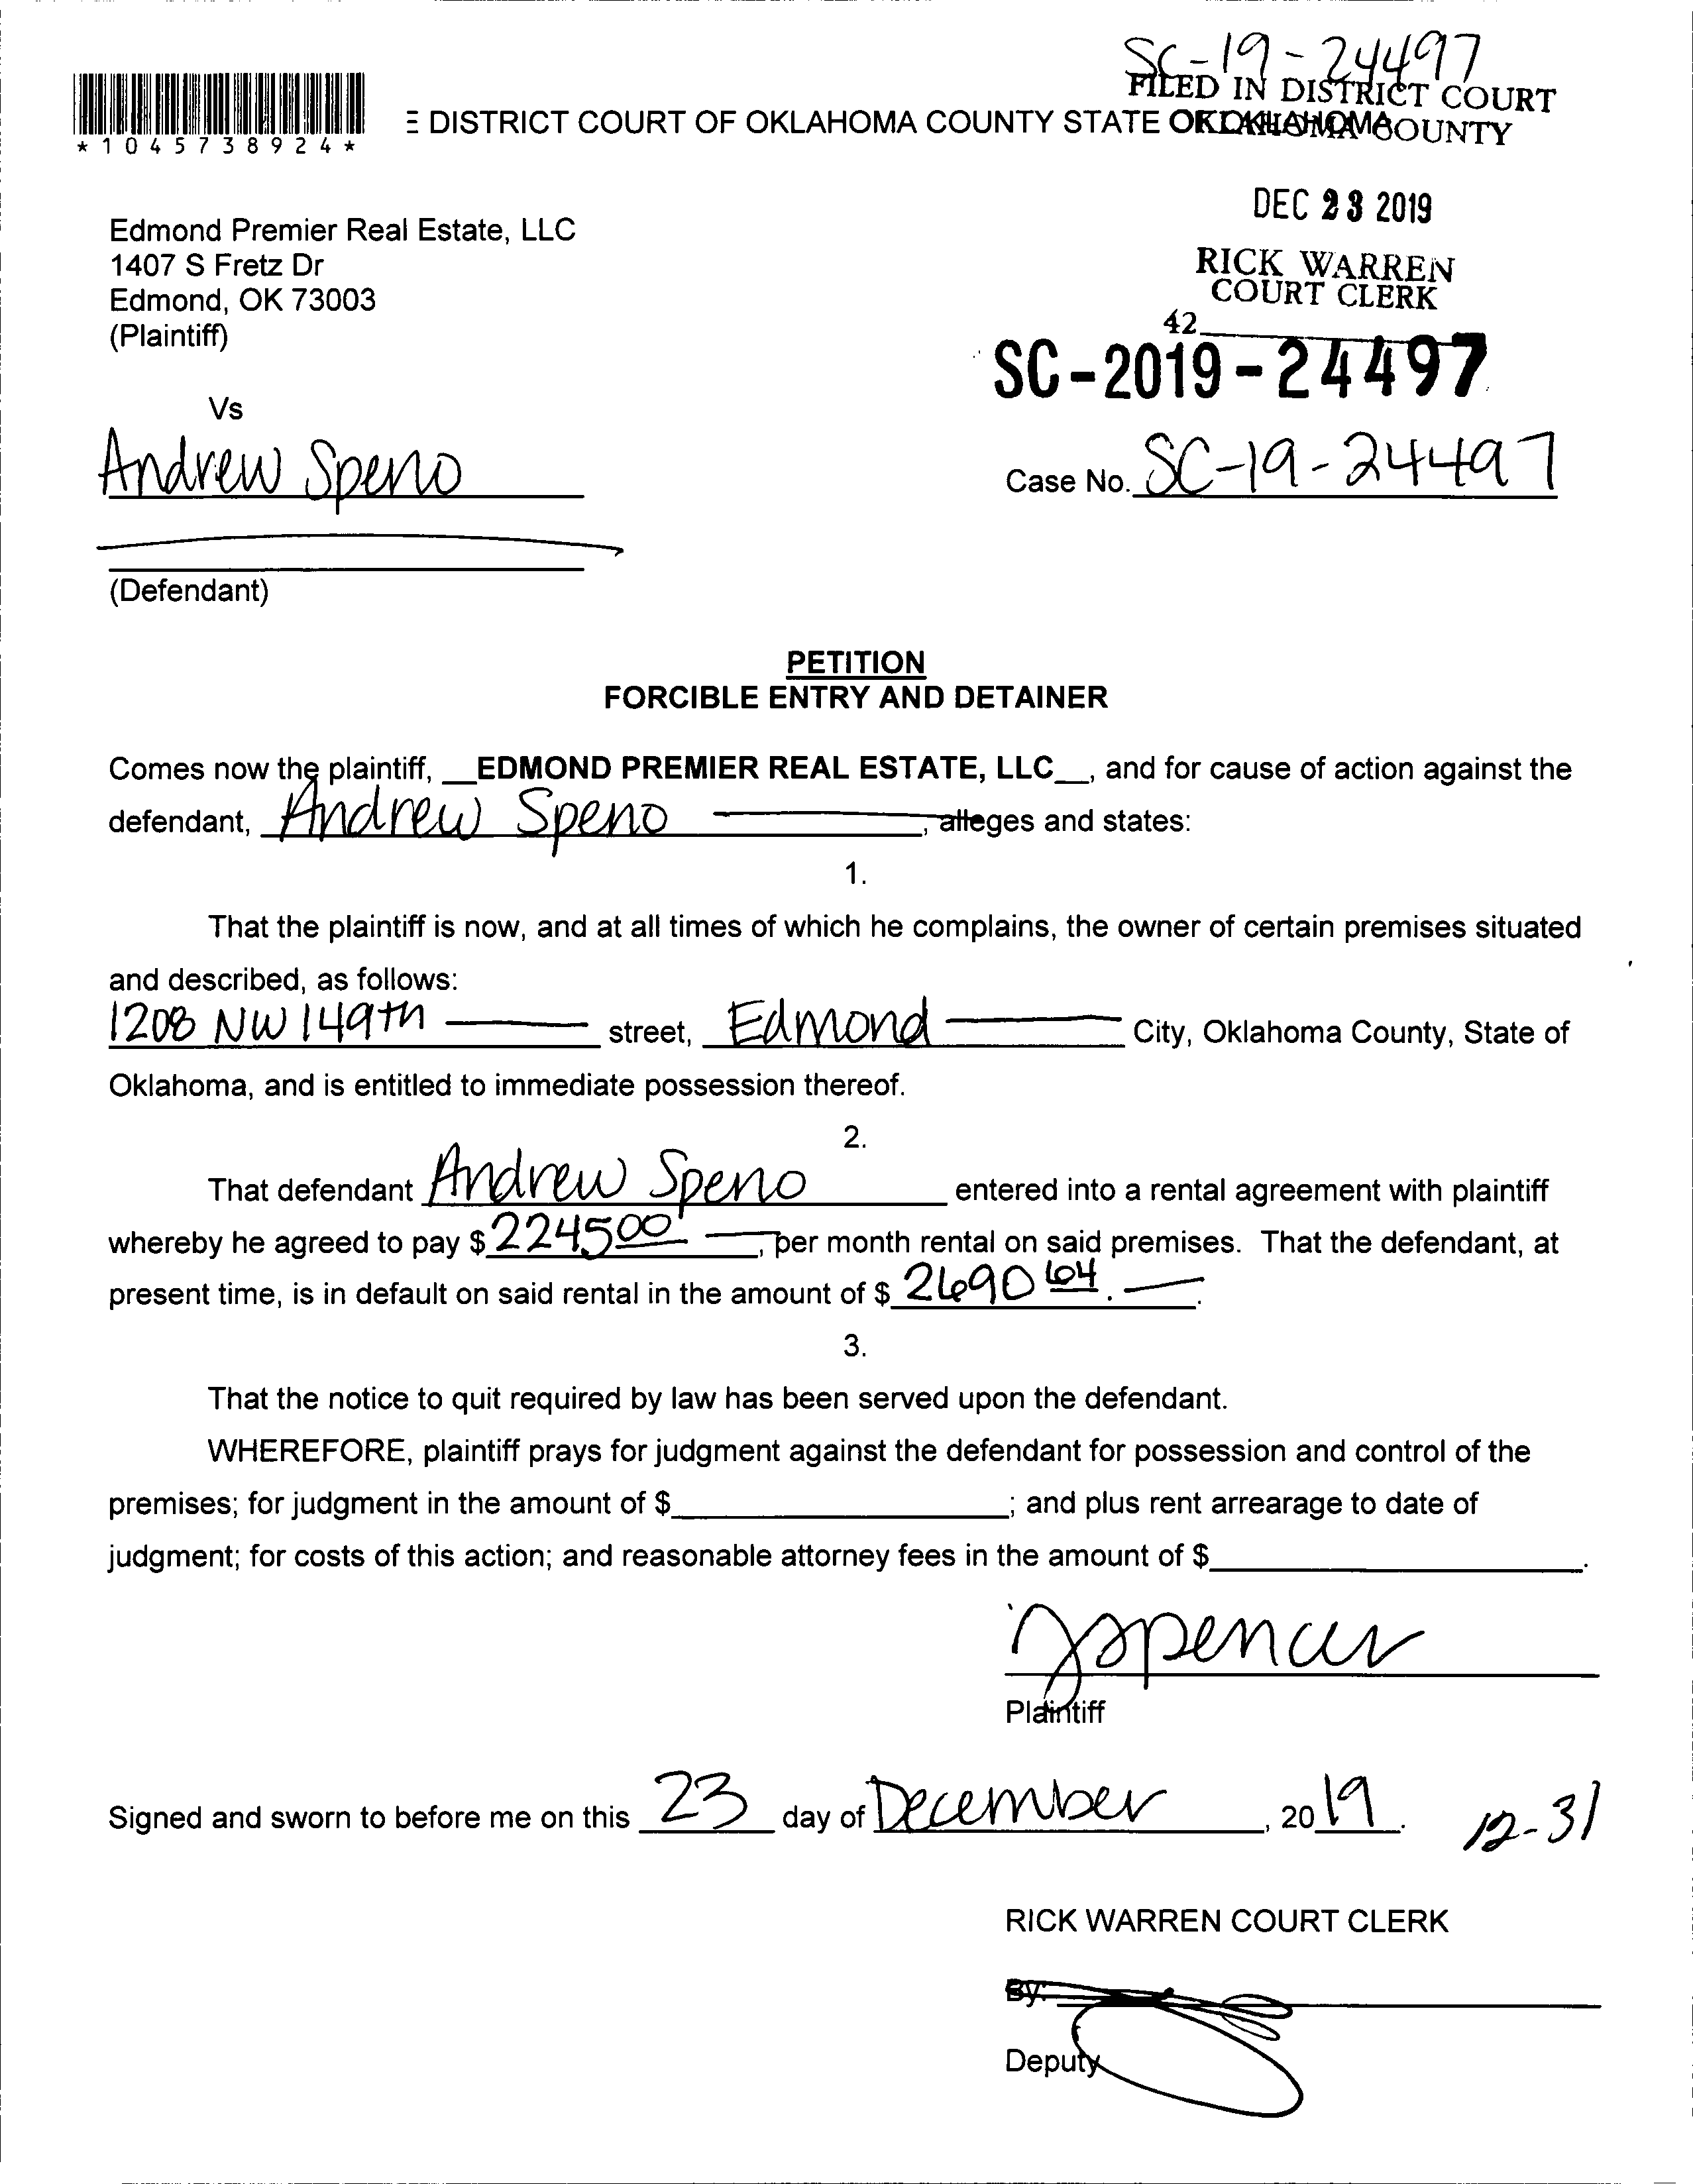 SC-19-24497
FILED IN DISTRICT COURT
OKLAHOMA COUNTY
* 1 0 4 5 7 3 8 9 2 4 *
E DISTRICT COURT OF OKLAHOMA COUNTY STATE OKLAHOMA
DEC 23 2019
Edmond Premier Real Estate, LLC
1407 S Fretz Dr
Edmond, OK 73003
(Plaintiff)
RICK WARREN
COURT CLERK
42
SC-2019-24497
Vs
Andrew Speno
Case No. SC-19-24497
(Defendant)
PETITION
FORCIBLE ENTRY AND DETAINER
Comes now the plaintiff, __EDMOND PREMIER REAL ESTATE, LLC__, and for cause of action against the
defendant, Andrew Speno, alleges and states:
1.
That the plaintiff is now, and at all times of which he complains, the owner of certain premises situated
and described, as follows:
1208 NW 149th street, Edmond City, Oklahoma County, State of
Oklahoma, and is entitled to immediate possession thereof.
2.
That defendant Andrew Speno entered into a rental agreement with plaintiff
whereby he agreed to pay $ 2245 00, per month rental on said premises. That the defendant, at
present time, is in default on said rental in the amount of $ 2690 64.
3.
That the notice to quit required by law has been served upon the defendant.
WHEREFORE, plaintiff prays for judgment against the defendant for possession and control of the
premises; for judgment in the amount of $__________; and plus rent arrearage to date of
judgment; for costs of this action; and reasonable attorney fees in the amount of $__________.
Plaintiff
Signed and sworn to before me on this 23 day of December, 2019. 12-31
RICK WARREN COURT CLERK
By:
Deputy